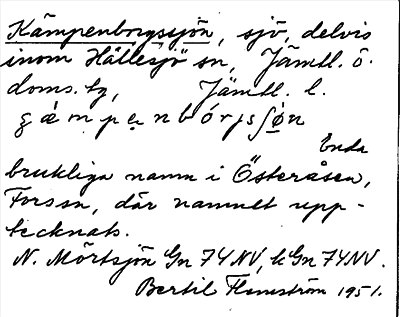 Kämpenborgssjön, sjö, delvis
inom Hällesjö sn, Jämtl. ö.
doms. tg, Jämtl. l.
Enda
brukliga namn i Österåsen,
Fors sn, där namnet upp-
tecknats.
N. Mörtsjön Gn 74 NV, k Gn 74 NV.
Bertil Flemström 1951.